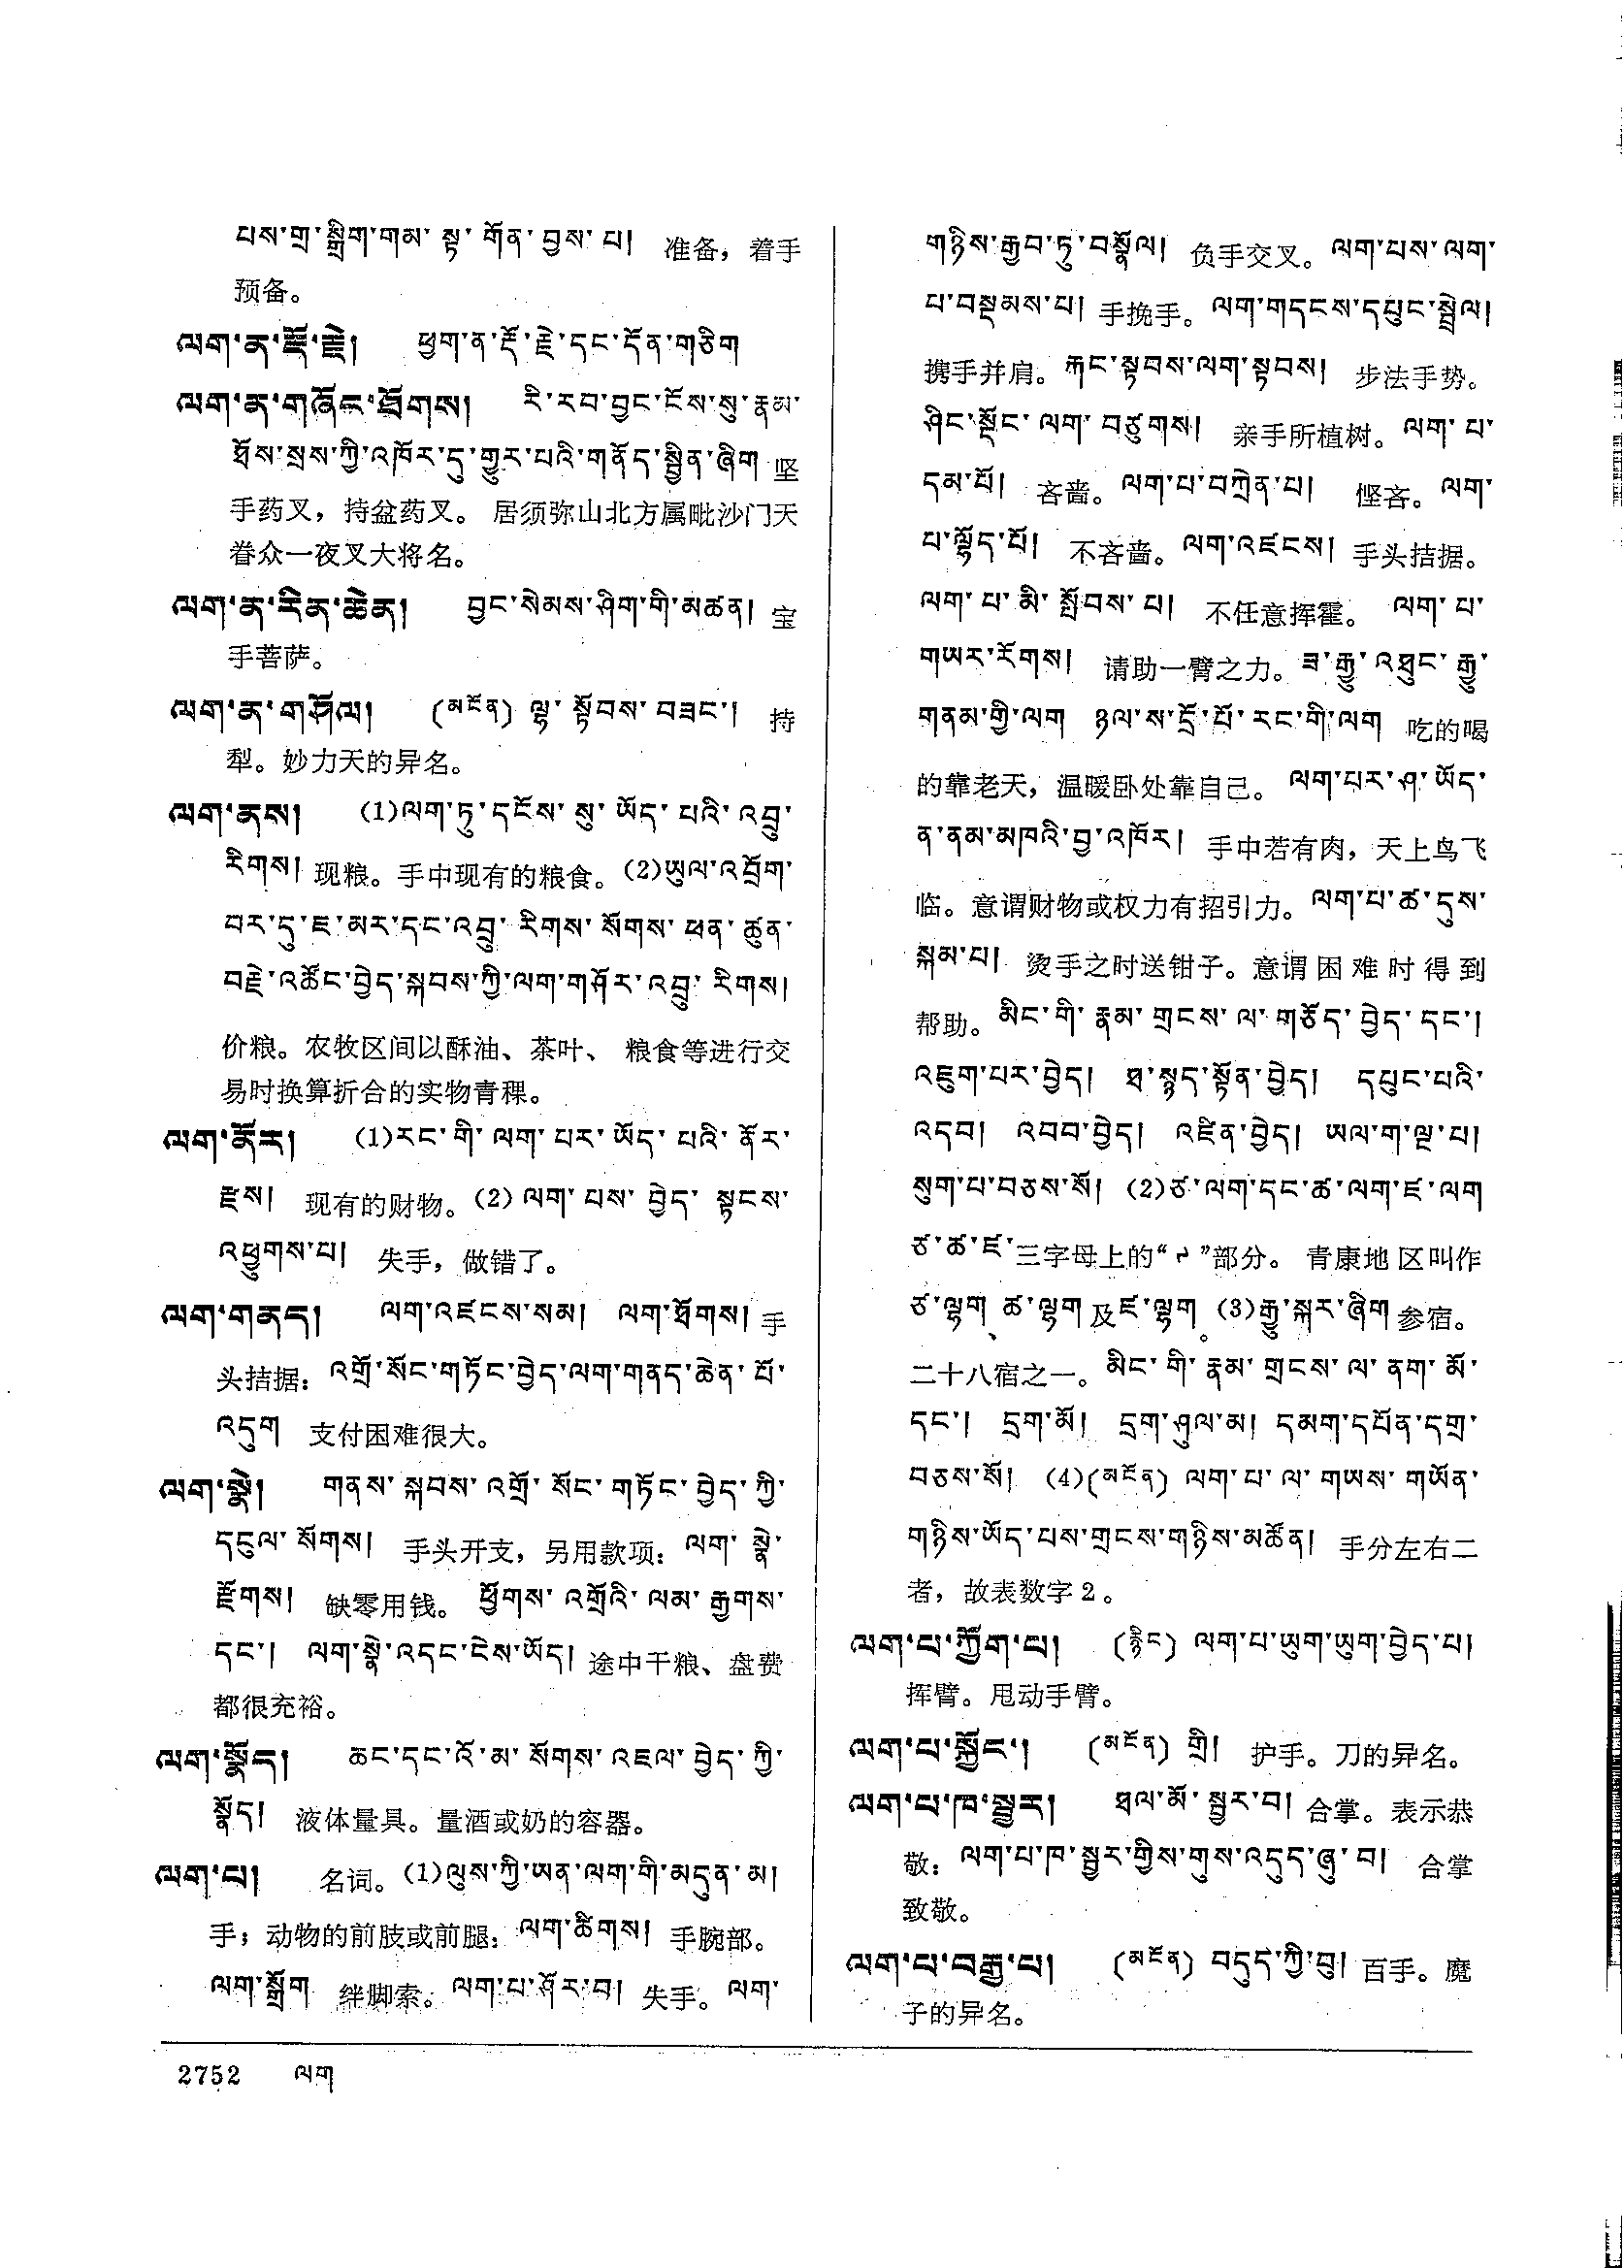 པས་གྲ་སྒྲིག་གམ་སྟ་གོན་བྱས་པ། 准备，着手
预备。
ལག་ན་རྡོ་རྗེ། ཕྱག་ན་རྡོ་རྗེ་དང་དོན་གཅིག
ལག་ན་གཞོང་ཐོགས། རི་རབ་བྱང་ངོས་སུ་རྣམ་
ཐོས་སྲས་ཀྱི་འཁོར་དུ་གྱུར་པའི་གནོད་སྦྱིན་ཞིག 坚
手药叉，持盆药叉。居须弥山北方属毗沙门天
眷众一夜叉大将名。
ལག་ན་རིན་ཆེན། བྱང་སེམས་ཤིག་གི་མཚན། 宝
手菩萨。
ལག་ན་གཤོལ། (མངོན) ལྷ་སྟོབས་བཟང་། 持
犁。妙力天的异名。
ལག་ནས། (1)ལག་ཏུ་དངོས་སུ་ཡོད་པའི་འབྲུ་
རིགས། 现粮。手中现有的粮食。(2)ཡུལ་འབྲོག་
བར་དུ་ཇ་མར་དང་འབྲུ་རིགས་སོགས་ཕན་ཚུན་
བརྗེ་འཚོང་བྱེད་སྐབས་ཀྱི་ལག་གཤོར་འབྲུ་རིགས།
价粮。农牧区间以酥油、茶叶、粮食等进行交
易时换算折合的实物青稞。
ལག་ནོར། (1)རང་གི་ལག་པར་ཡོད་པའི་ནོར་
རྫས། 现有的财物。(2)ལག་པས་བྱེད་སྟངས་
འཕྱུགས་པ། 失手，做错了。
ལག་གནད། ལག་འཛངས་སམ། ལག་ཐོགས། 手
头拮据：འགྲོ་སོང་གཏོང་བྱེད་ལག་གནད་ཆེན་པོ་
འདུག 支付困难很大。
ལག་སྣེ། གནས་སྐབས་འགྲོ་སོང་གཏོང་བྱེད་ཀྱི་
དངུལ་སོགས། 手头开支，另用款项：ལག་སྣེ་
རྫོགས། 缺零用钱。ཕྱོགས་འགྲོའི་ལམ་རྒྱགས་
དང་། ལག་སྣེ་འདང་ངེས་ཡོད། 途中干粮、盘费
都很充裕。
ལག་སྣོད། ཆང་དང་འོ་མ་སོགས་འཇལ་བྱེད་ཀྱི་
སྣོད། 液体量具。量酒或奶的容器。
ལག་པ། 名词。(1)ལུས་ཀྱི་ཡན་ལག་གི་མདུན་མ།
手；动物的前肢或前腿：ལག་ཚིགས། 手腕部。
ལག་སྒྲོག 绊脚索。ལག་པ་ཤོར་བ། 失手。ལག་
གཉིས་རྒྱབ་ཏུ་བསྣོལ། 负手交叉。ལག་པས་ལག་
པ་བསྡམས་པ། 手挽手。ལག་གདངས་དཔུང་སྦྲེལ།
携手并肩。རྐང་སྟབས་ལག་སྟབས། 步法手势。
ཤིང་སྡོང་ལག་བཙུགས། 亲手所植树。ལག་པ་
དམ་པོ། 吝啬。ལག་པ་བཀྲེན་པ། 悭吝。ལག་
པ་ལྷོད་པོ། 不吝啬。ལག་འཛངས། 手头拮据。
ལག་པ་མི་སྤོབས་པ། 不任意挥霍。 ལག་པ་
གཡར་རོགས། 请助一臂之力。ཟ་རྒྱུ་འཐུང་རྒྱུ་
གནམ་གྱི་ལག ཉལ་ས་དྲོ་པོ་རང་གི་ལག 吃的喝
的靠老天，温暖卧处靠自己。ལག་པར་ཤ་ཡོད་
ན་ནམ་མཁའི་བྱ་འཁོར། 手中若有肉，天上鸟飞
临。意谓财物或权力有招引力。ལག་པ་ཚ་དུས་
སྐམ་པ། 烫手之时送钳子。意谓困难时得到
帮助。མིང་གི་རྣམ་གྲངས་ལ་གཅོད་བྱེད་དང་།
འཇུག་པར་བྱེད། ཐ་སྙད་སྟོན་བྱེད། དཔུང་པའི་
འདབ། འབབ་བྱེད། འཛིན་བྱེད། ཡལ་ག་ལྔ་པ།
སུག་པ་བཅས་སོ། (2)ཙ་ལག་དང་ཚ་ལག་ཛ་ལག
ཙ་ཚ་ཛ་三字母上的“༹”部分。青康地区叫作
ཙ་ལྷག、ཚ་ལྷག及ཛ་ལྷག。(3)རྒྱུ་སྐར་ཞིག 参宿。
二十八宿之一。མིང་གི་རྣམ་གྲངས་ལ་ནག་མོ་
དང་། དྲག་མོ། དྲག་ཤུལ་མ། དམག་དཔོན་དགྲ་
བཅས་སོ། (4)(མངོན) ལག་པ་ལ་གཡས་གཡོན་
གཉིས་ཡོད་པས་གྲངས་གཉིས་མཚོན། 手分左右二
者，故表数字2。
ལག་པ་ཀྱོག་པ། (རྙིང) ལག་པ་ཡུག་ཡུག་བྱེད་པ།
挥臂。甩动手臂。
ལག་པ་སྐྱོང་། (མངོན) གྲི། 护手。刀的异名。
ལག་པ་ཁ་སྦྱར། ཐལ་མོ་སྦྱར་བ། 合掌。表示恭
敬：ལག་པ་ཁ་སྦྱར་གྱིས་གུས་འདུད་ཞུ་བ། 合掌
致敬。
ལག་པ་བརྒྱ་པ། (མངོན) བདུད་ཀྱི་བུ། 百手。魔
子的异名。
2752 ལག